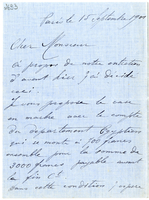 Paris le 15 Septembre 1900
Cher Monsieur
à propos de notre entretien
d'avant hier j'ai décidé
ceci:
Je vous propose la case
en marche avec le compte
du département Egyptien
qui se monte à 500 francs
ensemble pour la somme de
3000 francs payable avant
la fin Ct
Sous cette condition j'espère